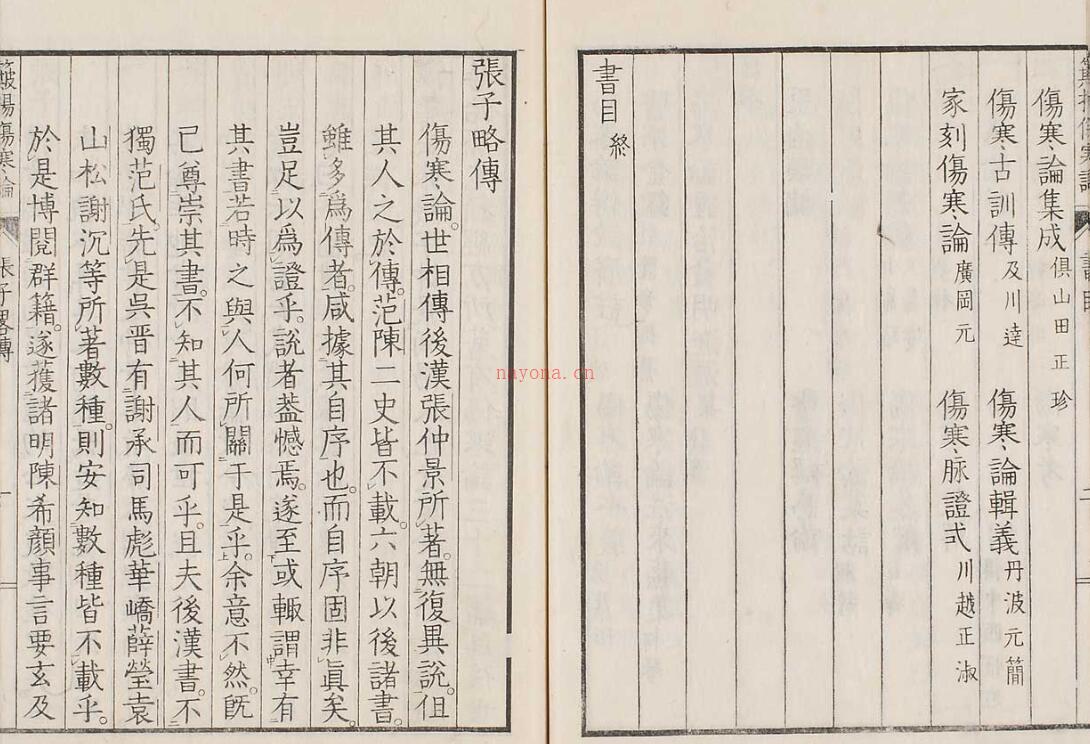 傷寒論集成 俱山田正珍
傷寒古訓傳 及川達 傷寒論輯義 丹波元簡
家刻傷寒論 廣岡元 傷寒脉證式 川越正淑
書目 終
張子略傳
傷寒論。世相傳後漢張仲景所著。無復異說。但
其人之於傳。范陳二史皆不載。六朝以後諸書。
雖多爲傳者。咸據其自序也。而自序固非眞矣。
豈足以爲證乎。說者盖憾焉。遂至或輙謂幸有
其書若時之與人何所關于是乎。余意不然。旣
已尊崇其書。不知其人而可乎。且夫後漢書。不
獨范氏。先是吳晋有謝承司馬彪華嶠薛瑩袁
山松謝沉等所著數種。則安知數種皆不載乎。
於是博閱群籍。遂獲諸明陳希顔事言要玄及
張子略傳
nayona.cn